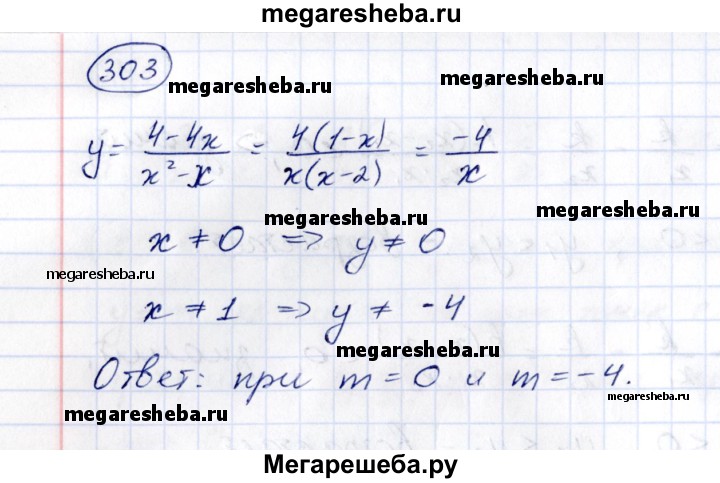 megaresheba.ru
303
megaresheba.ru
megaresheba.ru
y = (4-4x)/(x²-x) = 4(1-x)/(x(x-2)) = -4/x
megaresheba.ru
megaresheba.ru
x ≠ 0 => y ≠ 0
megaresheba.ru
x ≠ 1 => y ≠ -4
megaresheba.ru
Ответ: при m = 0 и m = -4.
megaresheba.ru
megaresheba.ru
Мегарешеба.ру